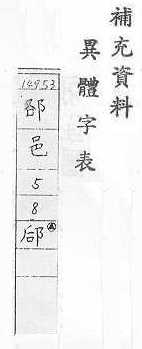 補充資料
異體字表
14953
郃
邑
5
8
郈